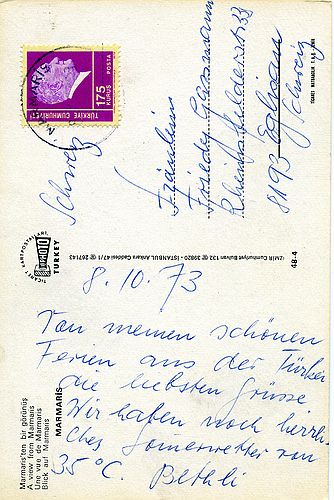 MARMARİS
TÜRKİYE CUMHURİYETİ
175
KURUŞ
POSTA
Schweiz
Fräulein
Frieda
Rheinfelderstr. 33
8193 Eglisau
Schweiz
TİCARET MATBAACILIK T.A.Ş. İZMİR
TİCARET KARTPOSTALLARI,
TURKEY
İZMİR Cumhuriyet Bulvarı 132 ☎ 39820 - İSTANBUL Ankara Caddesi 47/1 ☎ 267143
48-4
8.10.73
Von meinen schönen
Ferien aus der Türkei
die liebsten Grüsse
Wir haben noch herrli-
ches Sommerwetter von
35°C. Bethli
MARMARİS
Marmaris'ten bir görünüş
A view from Marmaris
Une vue de Marmaris
Blick auf Marmaris